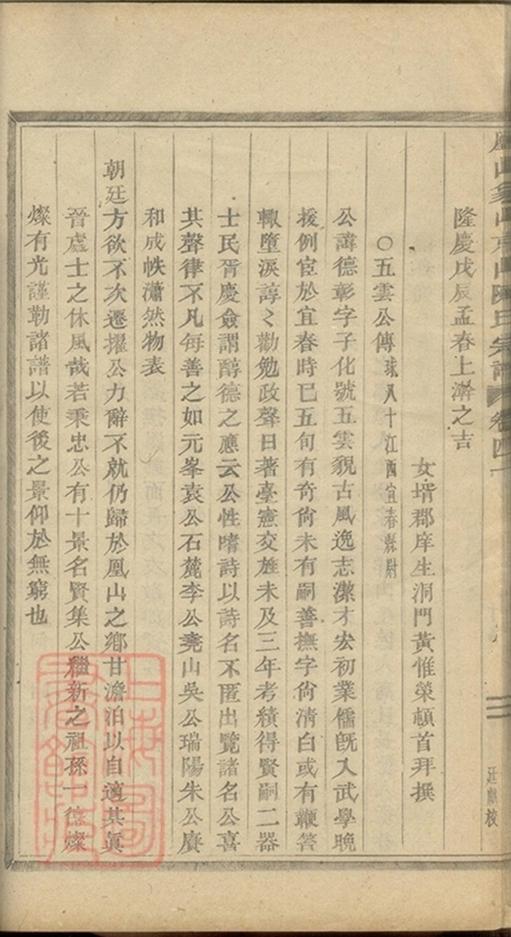 隆慶戊辰孟春上澣之吉
女壻郡庠生洞門黃惟榮頓首拜撰
〇五雲公傳球八十江西宜春縣尉
公諱德彰字子化號五雲貌古風逸志潔才宏初業儒旣入武學晚
援例宦於宜春時巳五旬有奇尙未有嗣善撫字尙淸白或有鞭笞
輙墮淚諄〻勸勉政聲日著臺憲交旌未及三年考績得賢嗣二器
士民胥慶僉謂醇德之應云公性嗜詩以詩名不匿出覽諸名公喜
其聲律不凡每善之如元峯袁公石麓李公堯山吳公瑞陽朱公賡
和成帙瀟然物表
朝廷方欲不次遷擢公力辭不就仍歸於鳳山之鄉甘澹泊以自適其眞
晉處士之休風哉若秉忠公有十景名賢集公繼新之祖孫一德燦
燦有光謹勒諸譜以使後之景仰於無窮也
山陳氏宗譜卷四
廷獻校